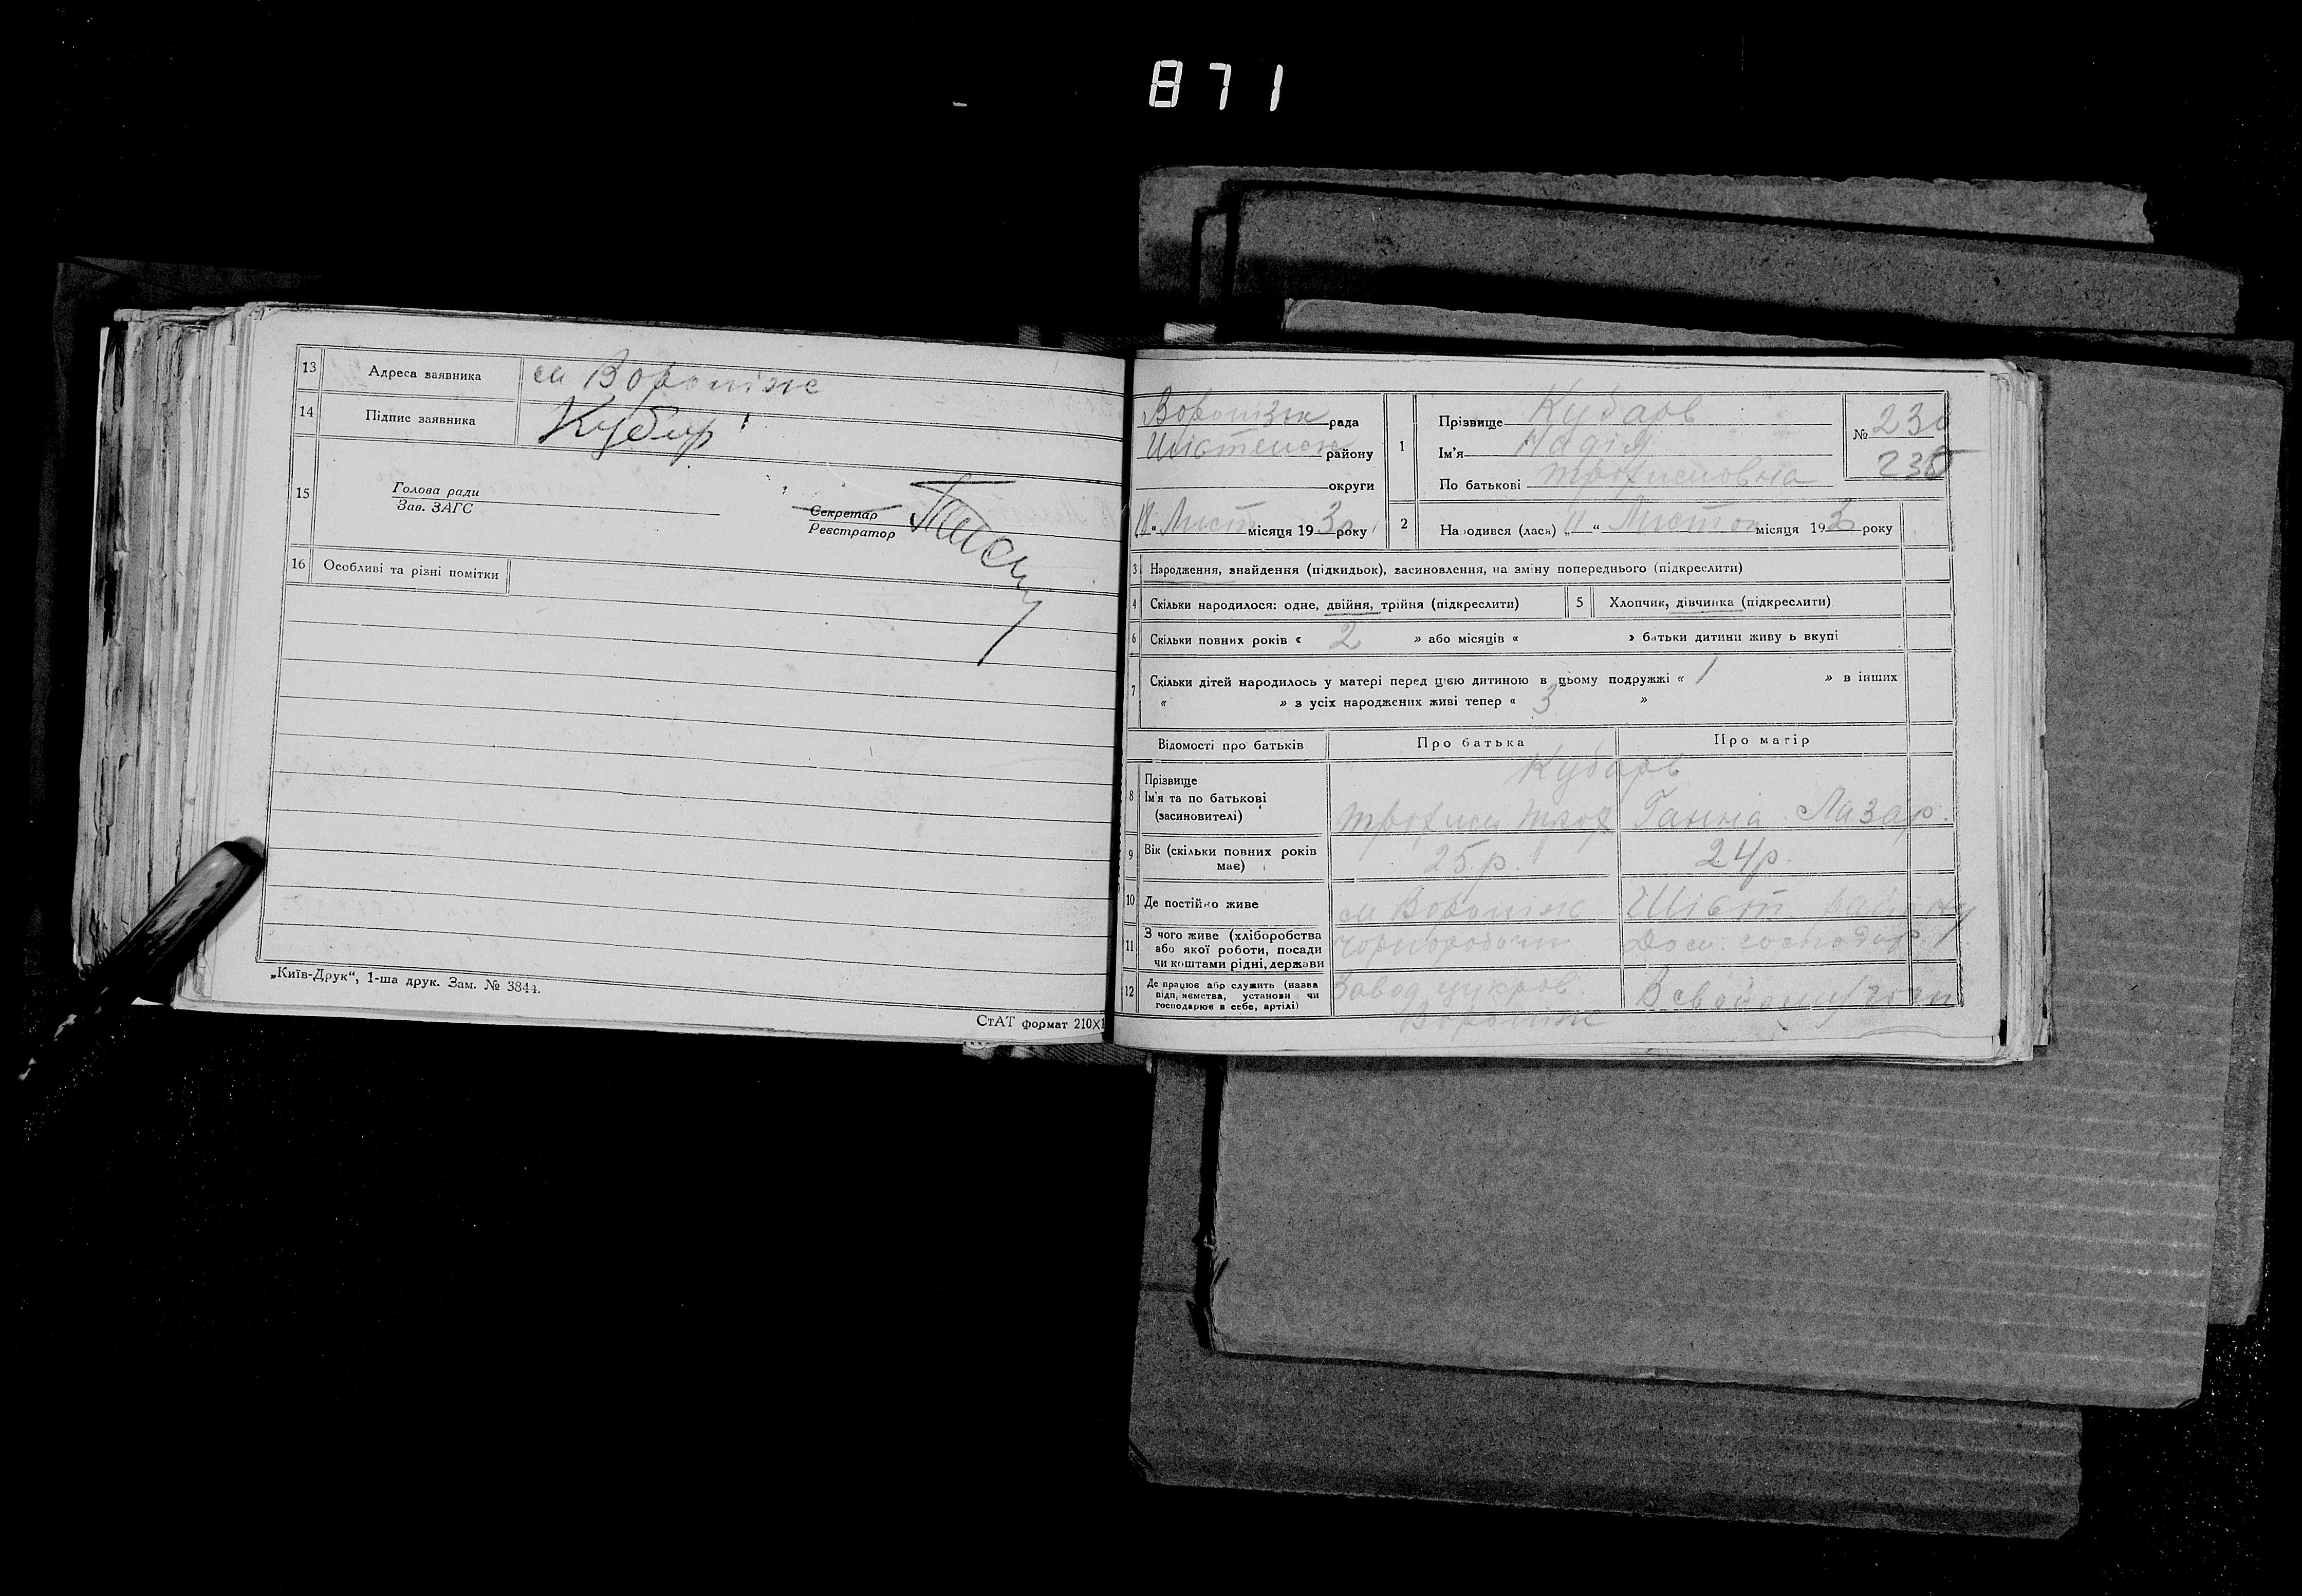 871
13 Адреса заявника см Вороніж
14 Підпис заявника Кубар
15 Голова ради
Зав. ЗАГС
Секретар
Реєстратор
16 Особливі та різні помітки
„Київ-Друк“, 1-ша друк. Зам. № 3844.
СтАТ формат 210×1
Воронізьк рада
району
округи
„18“ Лист місяця 193 року
1 Прізвище Кубарь
Ім'я Надія
По батькові Трохимовна
№ 230
235
2 Народився (лася) „11“ Листоп місяця 193 року
3 Народження, знайдення (підкидьок), засиновлення, на зміну попереднього (підкреслити)
4 Скільки народилося: одне, двійня, трійня (підкреслити) 5 Хлопчик, дівчинка (підкреслити)
6 Скільки повних років « 2 » або місяців « » батьки дитини живу ь вкупі
7 Скільки дітей народилось у матері перед цією дитиною в цьому подружжі « 1 » в інших
« » з усіх народжених живі тепер « 3 »
Відомості про батьків Про батька Про матір
8 Прізвище Кубарь
Ім'я та по батькові
(засиновителі) Ганна Лазар.
9 Вік (скільки повних років має) 25 р. 24 р.
10 Де постійно живе см Вороніж Шіст району
11 З чого живе (хліборобства
або якої роботи, посади
чи коштами рідні, держави чорноробочи Дом. господар.
12 Де працює або служить (назва
підприємства, установи чи
господарює в себе, артілі) Завод цукров.
Вороніж